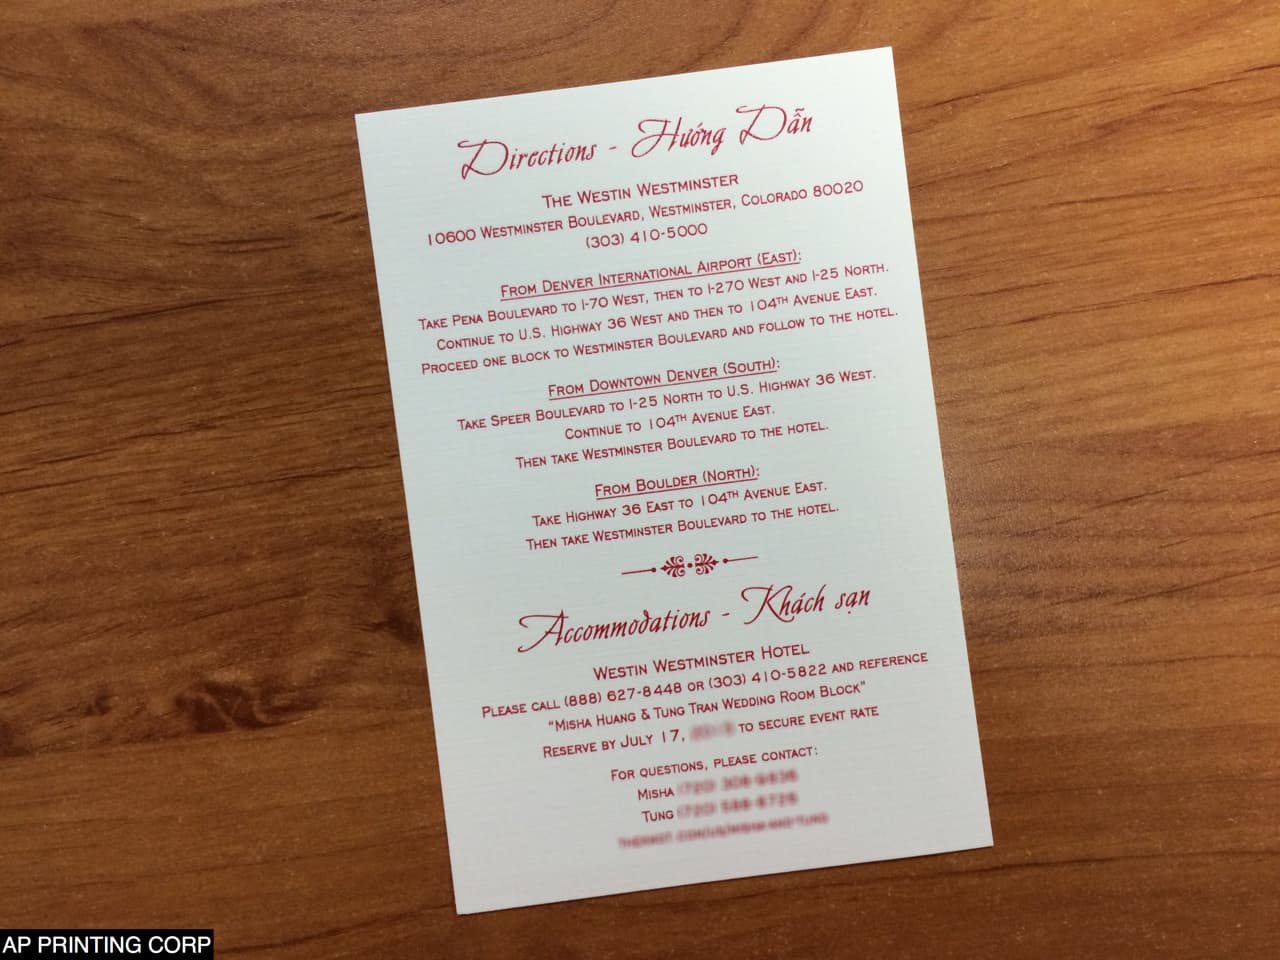 Directions - Hướng Dẫn
THE WESTIN WESTMINSTER
10600 WESTMINSTER BOULEVARD, WESTMINSTER, COLORADO 80020
(303) 410-5000
FROM DENVER INTERNATIONAL AIRPORT (EAST):
TAKE PENA BOULEVARD TO I-70 WEST, THEN TO I-270 WEST AND I-25 NORTH.
CONTINUE TO U.S. HIGHWAY 36 WEST AND THEN TO 104TH AVENUE EAST.
PROCEED ONE BLOCK TO WESTMINSTER BOULEVARD AND FOLLOW TO THE HOTEL.
FROM DOWNTOWN DENVER (SOUTH):
TAKE SPEER BOULEVARD TO I-25 NORTH TO U.S. HIGHWAY 36 WEST.
CONTINUE TO 104TH AVENUE EAST.
THEN TAKE WESTMINSTER BOULEVARD TO THE HOTEL.
FROM BOULDER (NORTH):
TAKE HIGHWAY 36 EAST TO 104TH AVENUE EAST.
THEN TAKE WESTMINSTER BOULEVARD TO THE HOTEL.
Accommodations - Khách sạn
WESTIN WESTMINSTER HOTEL
PLEASE CALL (888) 627-8448 OR (303) 410-5822 AND REFERENCE
"MISHA HUANG & TUNG TRAN WEDDING ROOM BLOCK"
RESERVE BY JULY 17, TO SECURE EVENT RATE
FOR QUESTIONS, PLEASE CONTACT:
MISHA
TUNG
AP PRINTING CORP